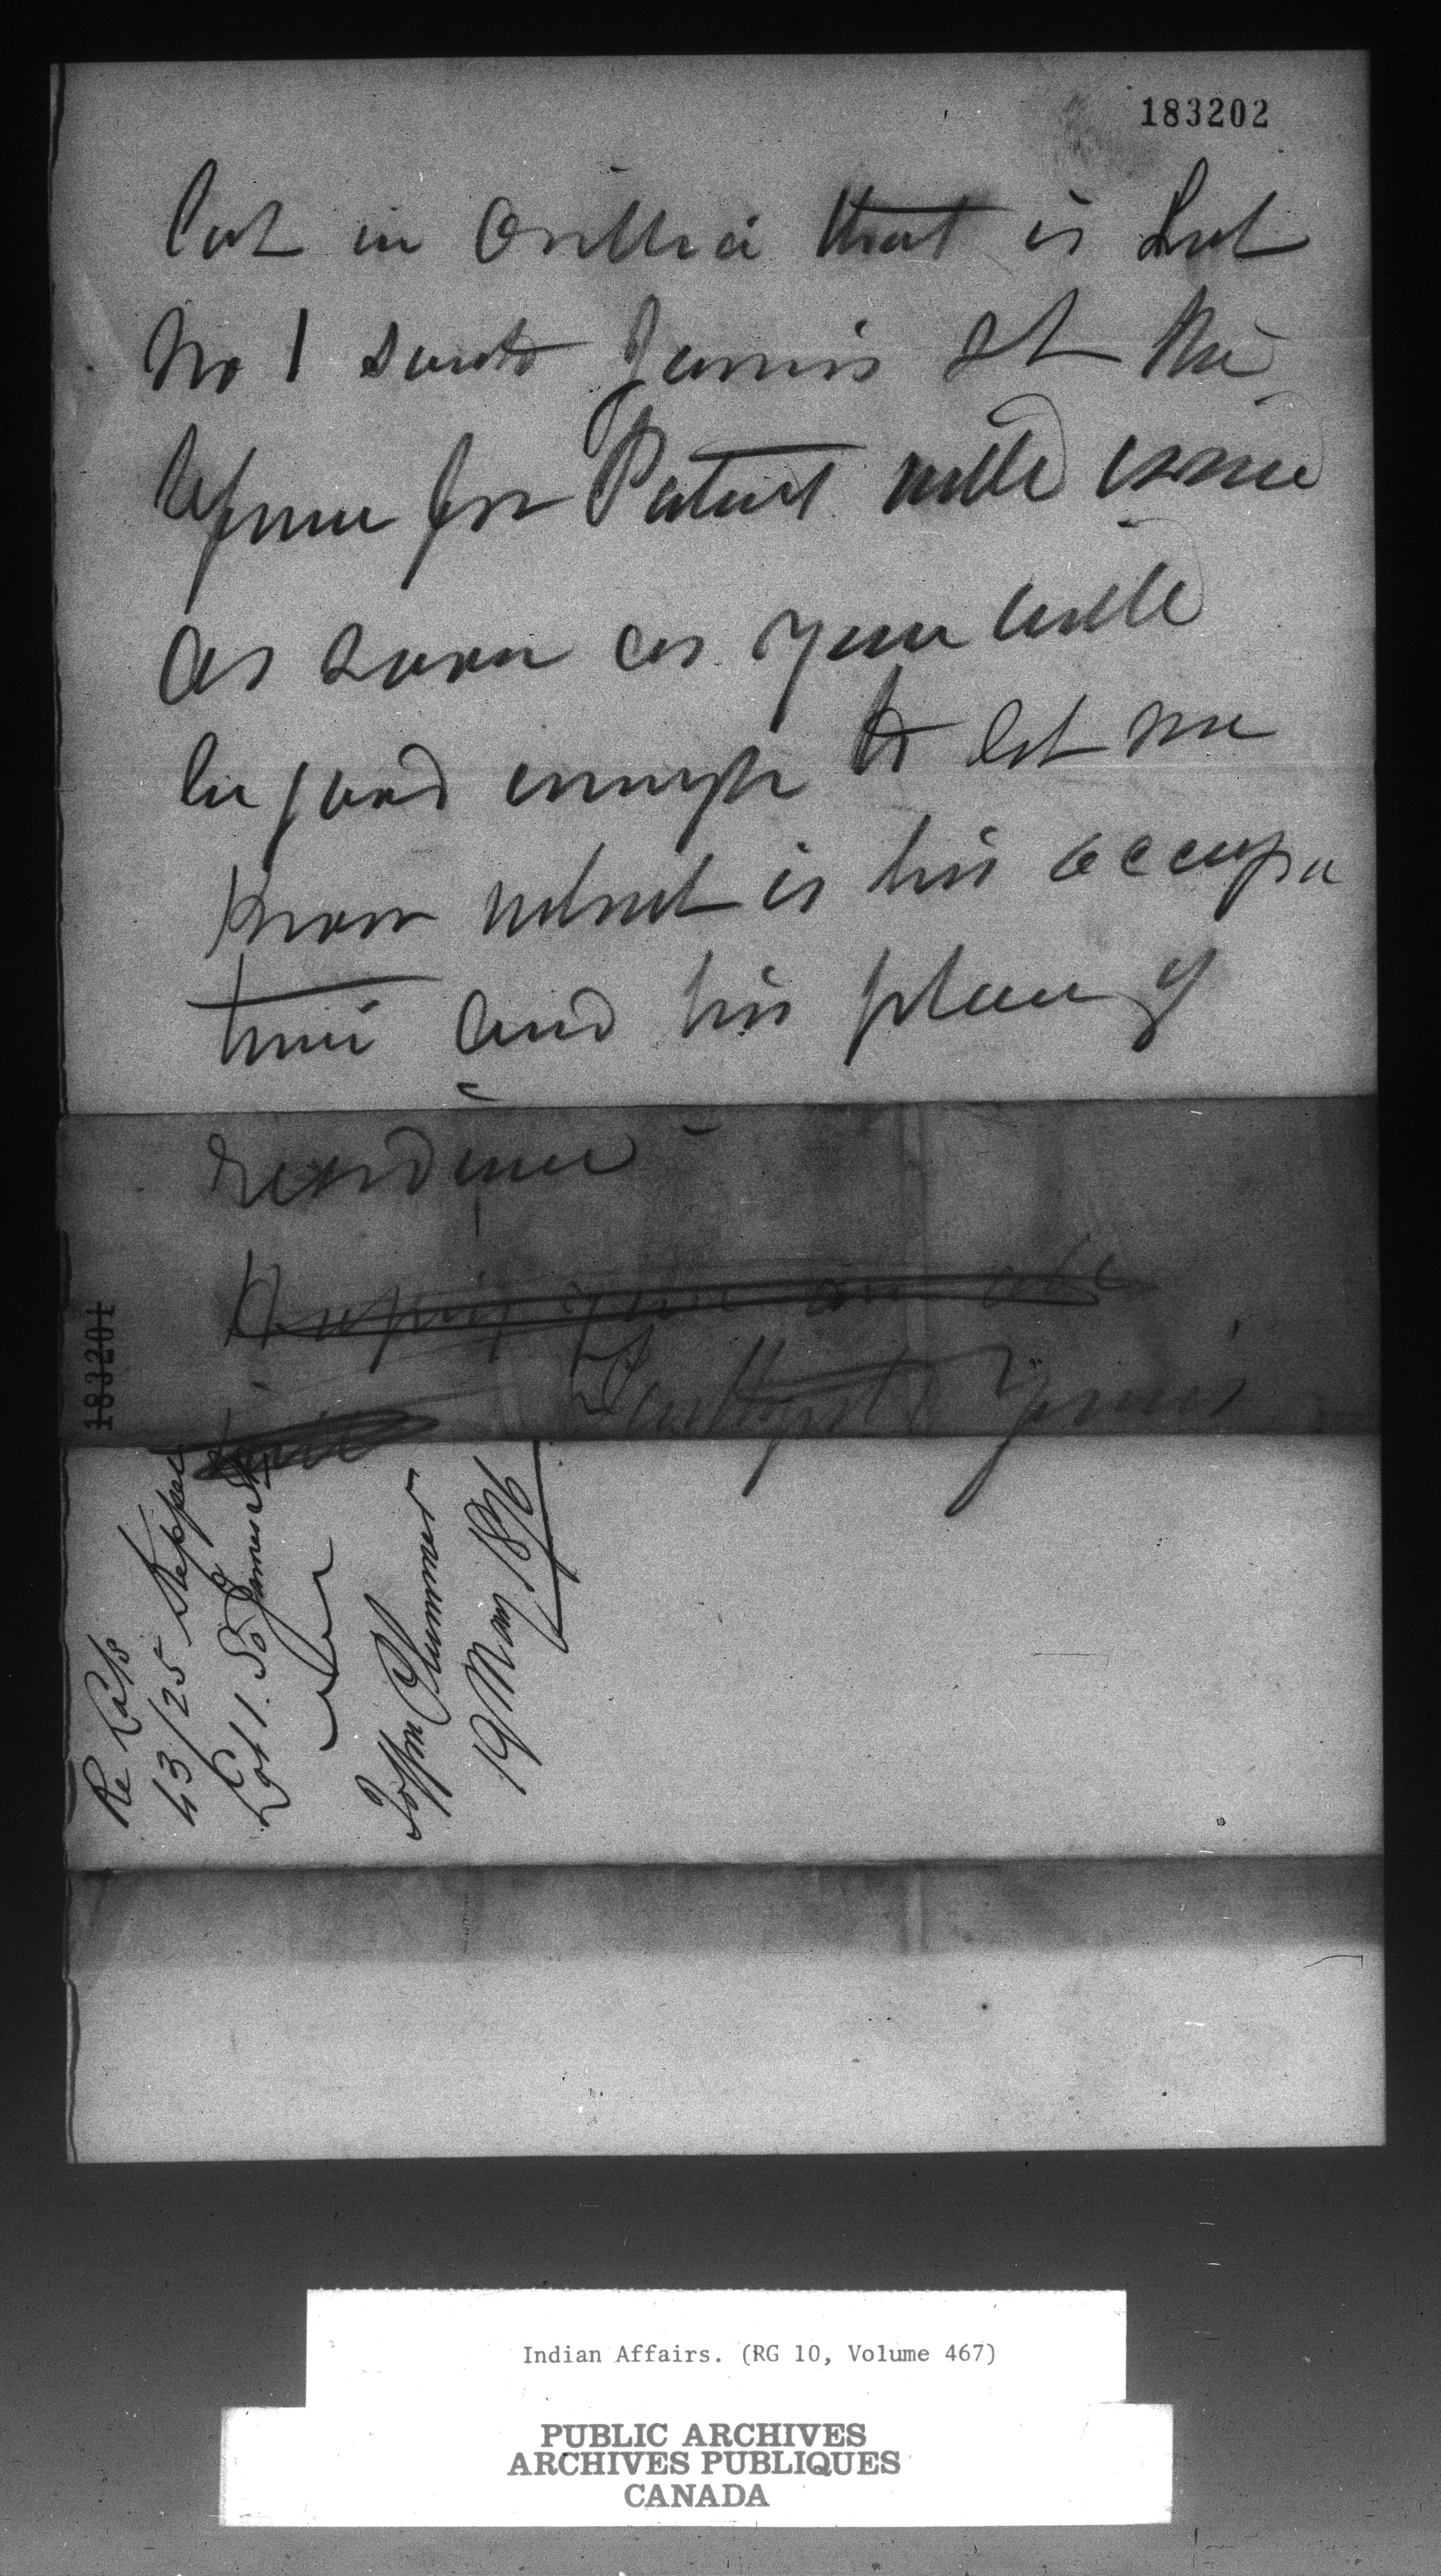 183202
lot in Orillia that is Lot
No 1 south James St the
return for Patent will issue
as soon as you will
be good enough to let me
know what is his occupa
tion and his place of
residence
Hoping you are well
Faithfully Yours
183201
Re Lots
43/25 Keppel
Lot 1. So James St
Plummer
19 May 1876
Indian Affairs. (RG 10, Volume 467)
PUBLIC ARCHIVES
ARCHIVES PUBLIQUES
CANADA